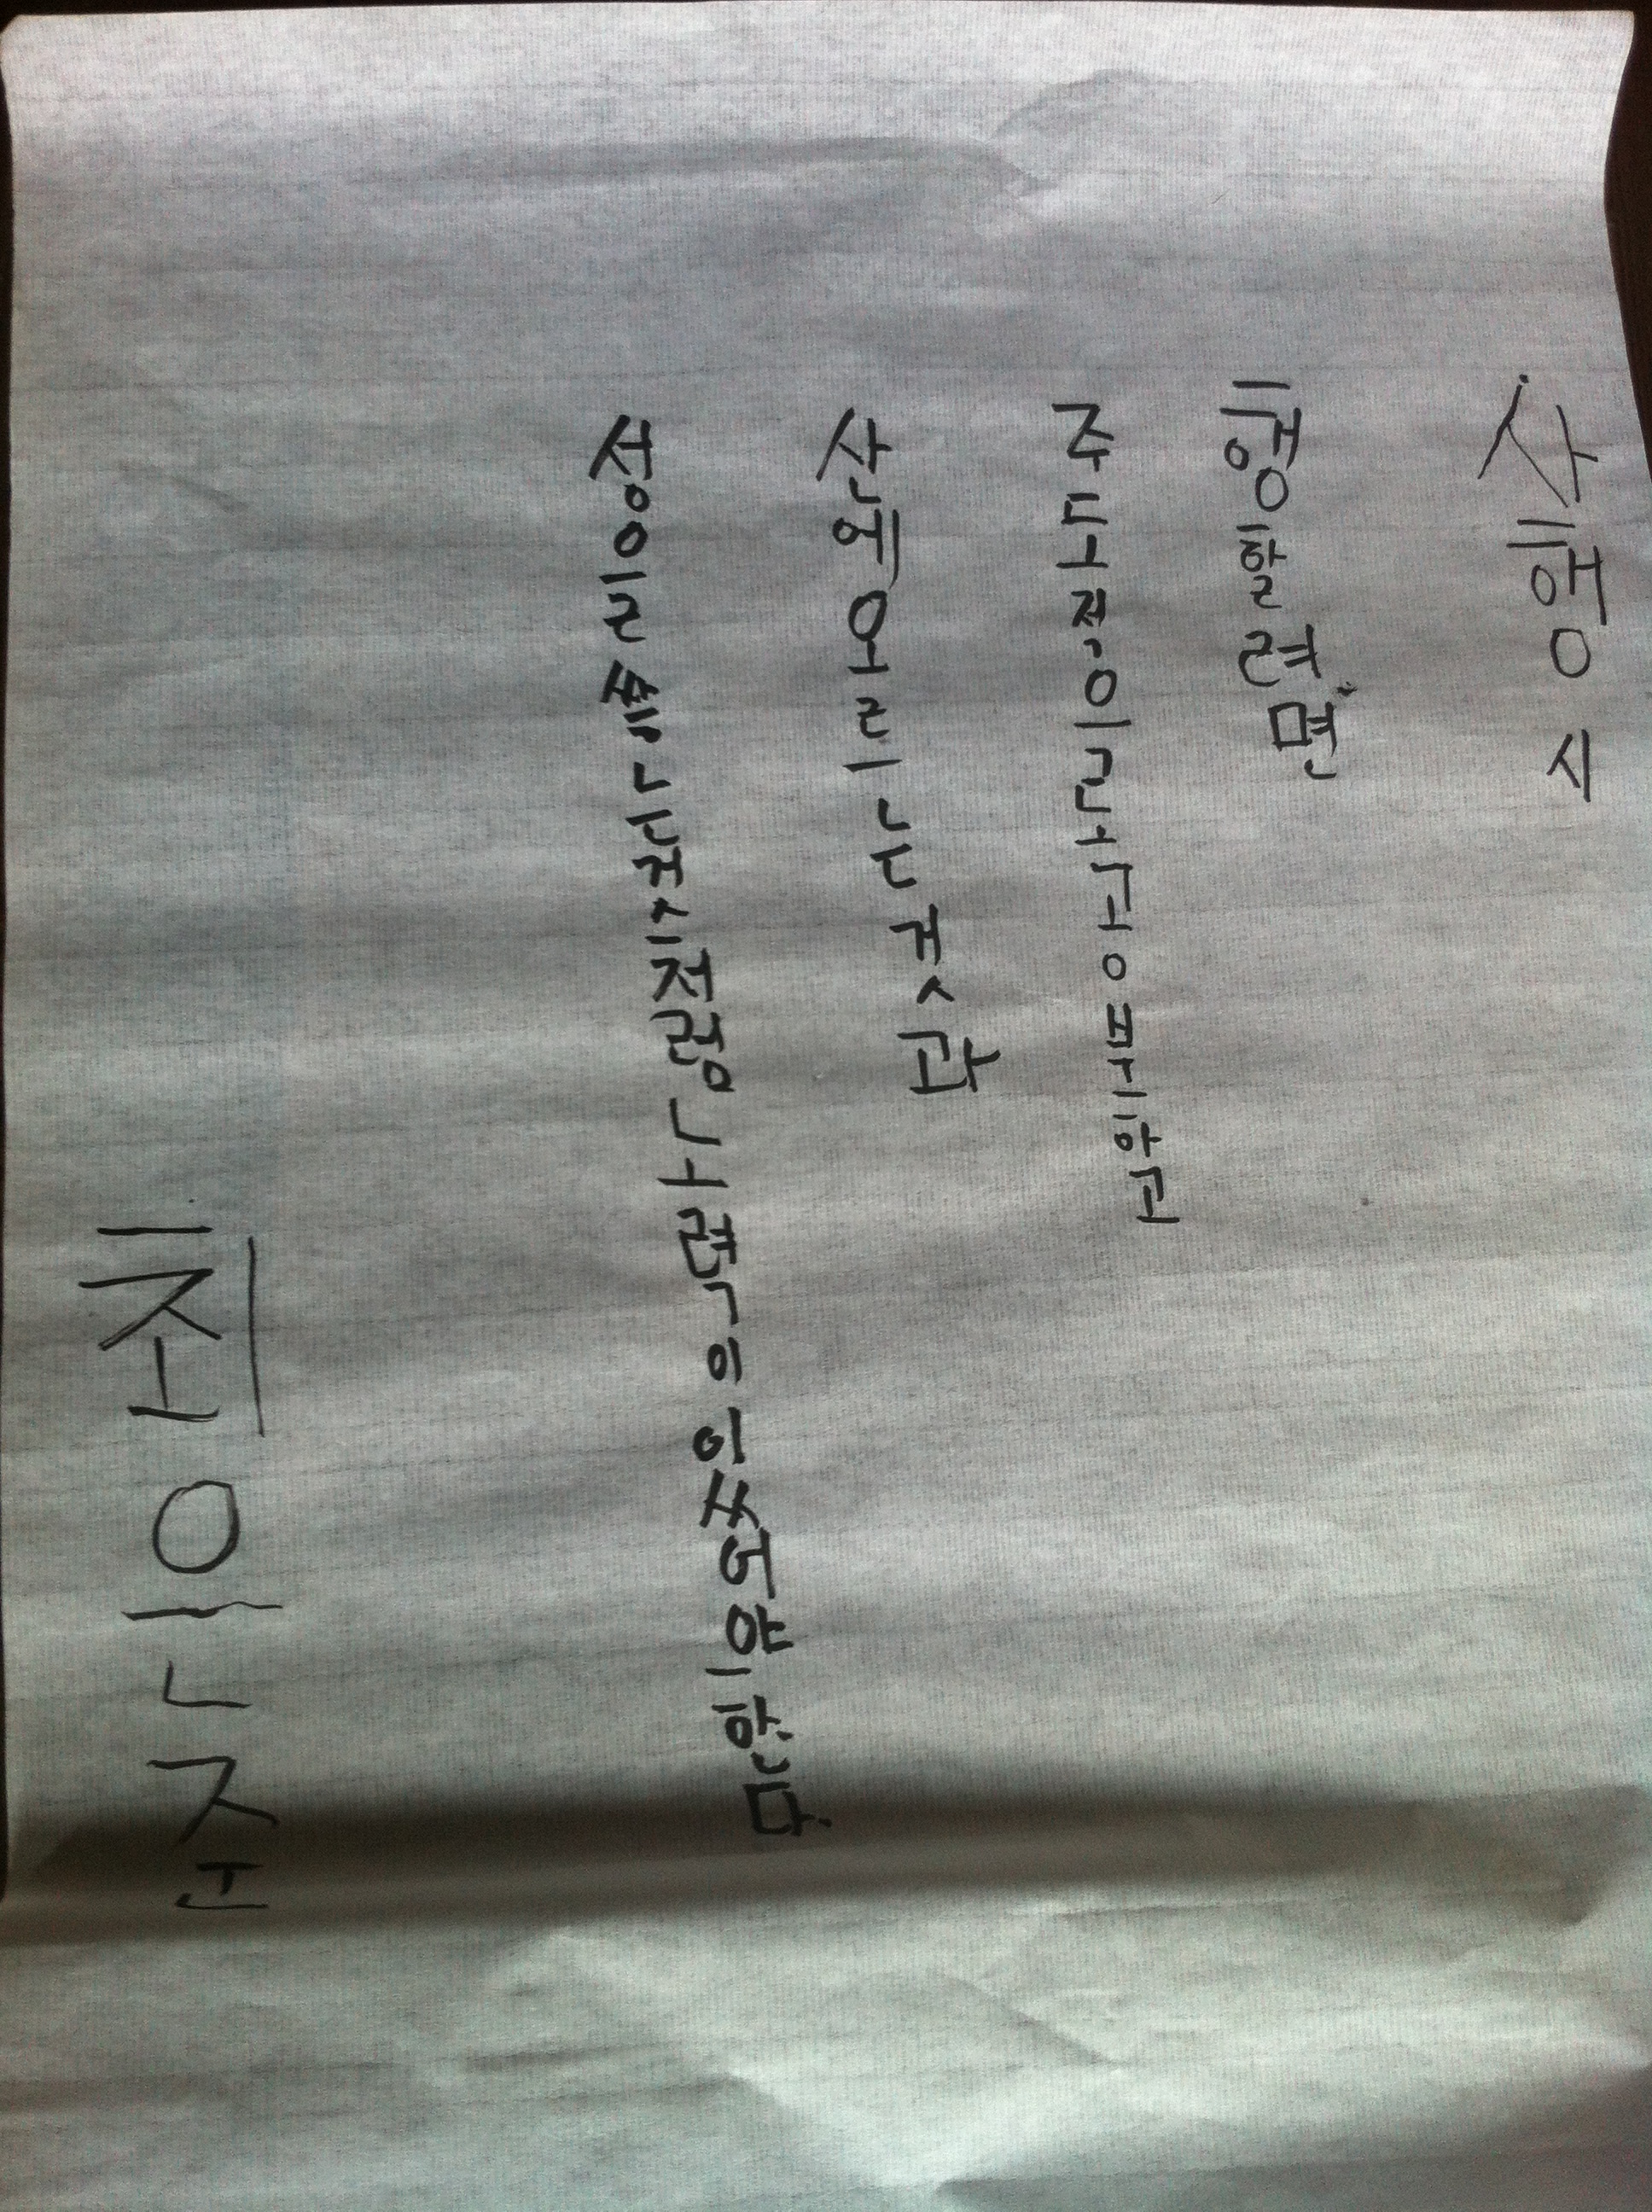 사행시
행할려면
주도적으로공부하고
산에오르는것과
성을쌓는것처럼노력이있어야한다.
최은준